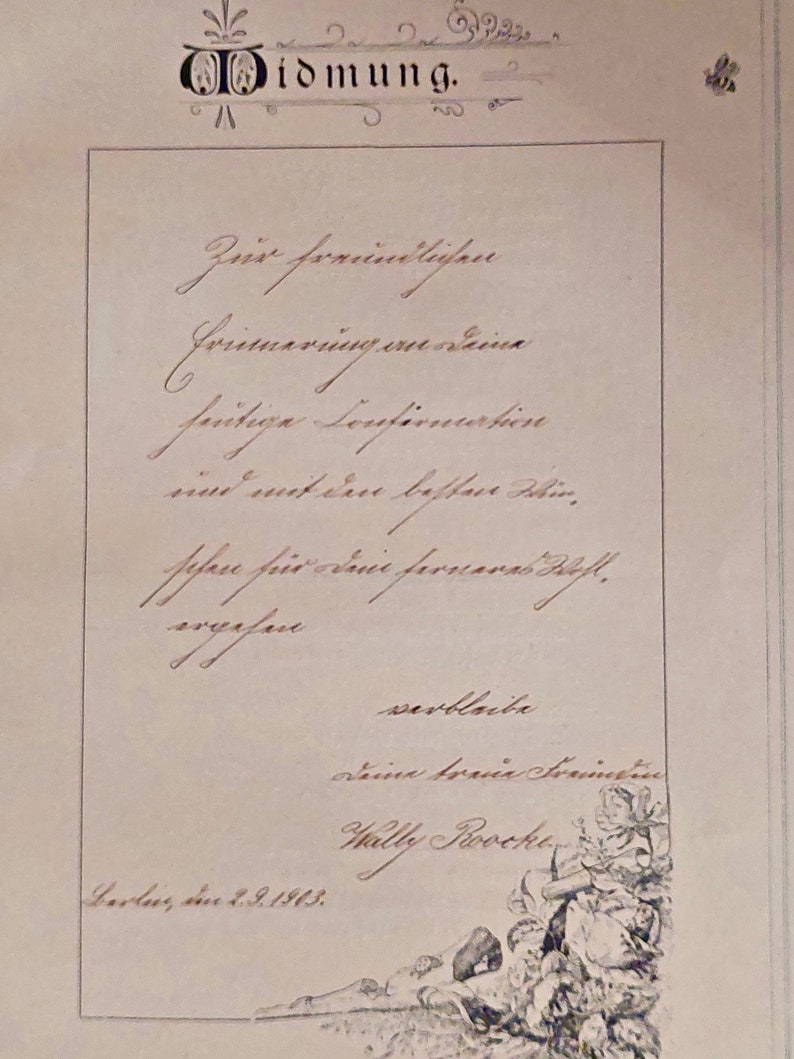 Widmung.
Zur freundlichen
Erinnerung an Deine
heutige Confirmation
und mit den besten Wün-
schen für Dein ferneres Wohl-
ergehen
verbleibe
Deine treue Freundin
Wally
Berlin, den 2.9.1903.